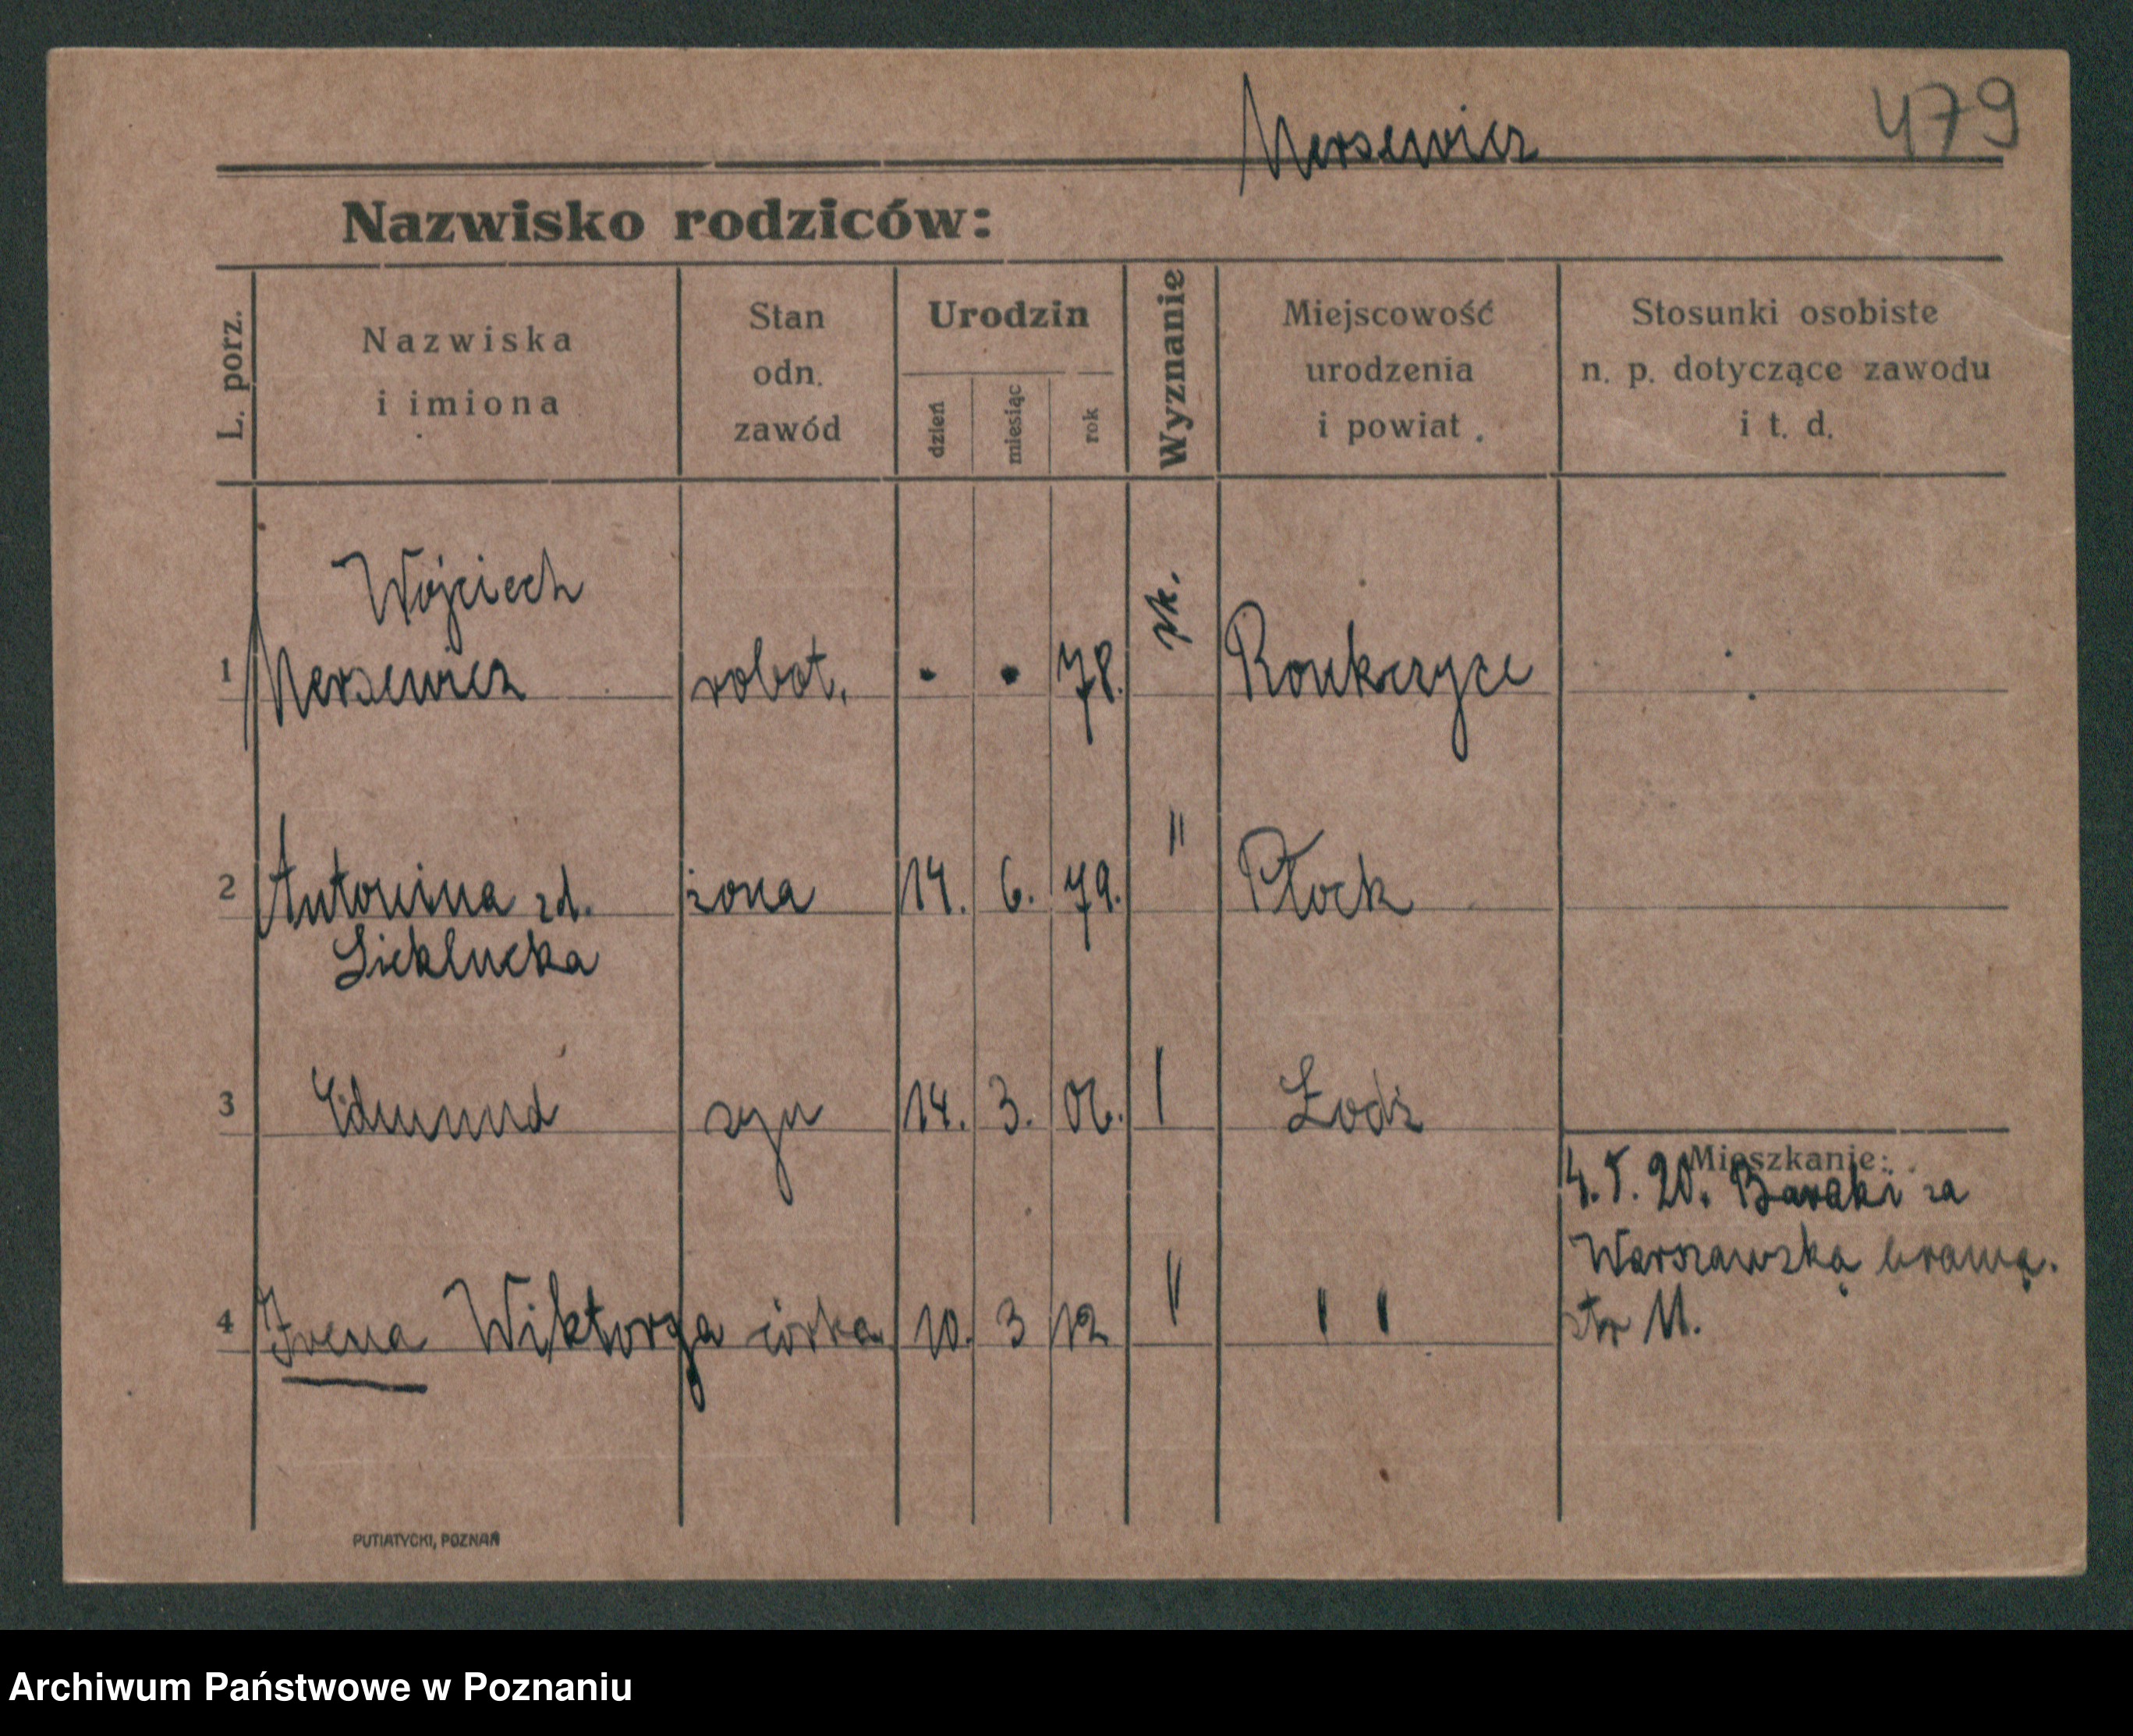 479
Mersewicz
Nazwisko rodziców:
L. porz.
Nazwiska
i imiona
Stan
odn.
zawód
Urodzin
dzień
miesiąc
rok
Wyznanie
Miejscowość
urodzenia
i powiat
Stosunki osobiste
n. p. dotyczące zawodu
i t. d.
Wojciech
1 Mersewicz robot. • • 78.
2 Antonina zd. żona 14. 6. 79. " Płock
3 Edmund syn 14. 3. 06. Łodź
Mieszkanie:
4. 5. 20. Baraki za
Warszawską bramą.
4 Irena Wiktorya córka 10. 3 12 " "
PUTIATYCKI, POZNAŃ
Archiwum Państwowe w Poznaniu